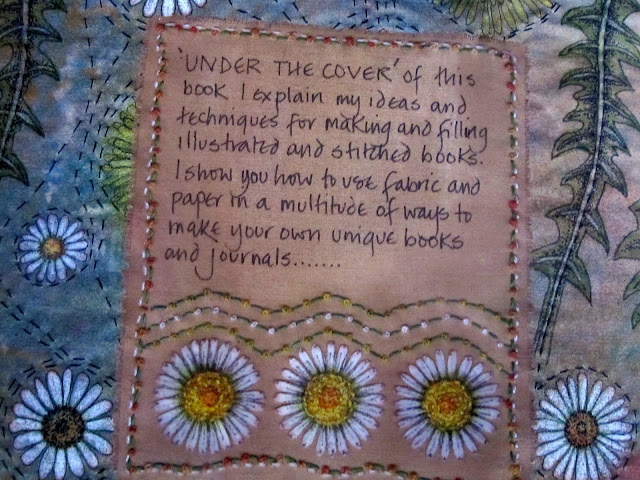 'UNDER THE COVER' of this
book I explain my ideas and
techniques for making and filling
illustrated and stitched books.
I show you how to use fabric and
paper in a multitude of ways to
make your own unique books
and journals.......